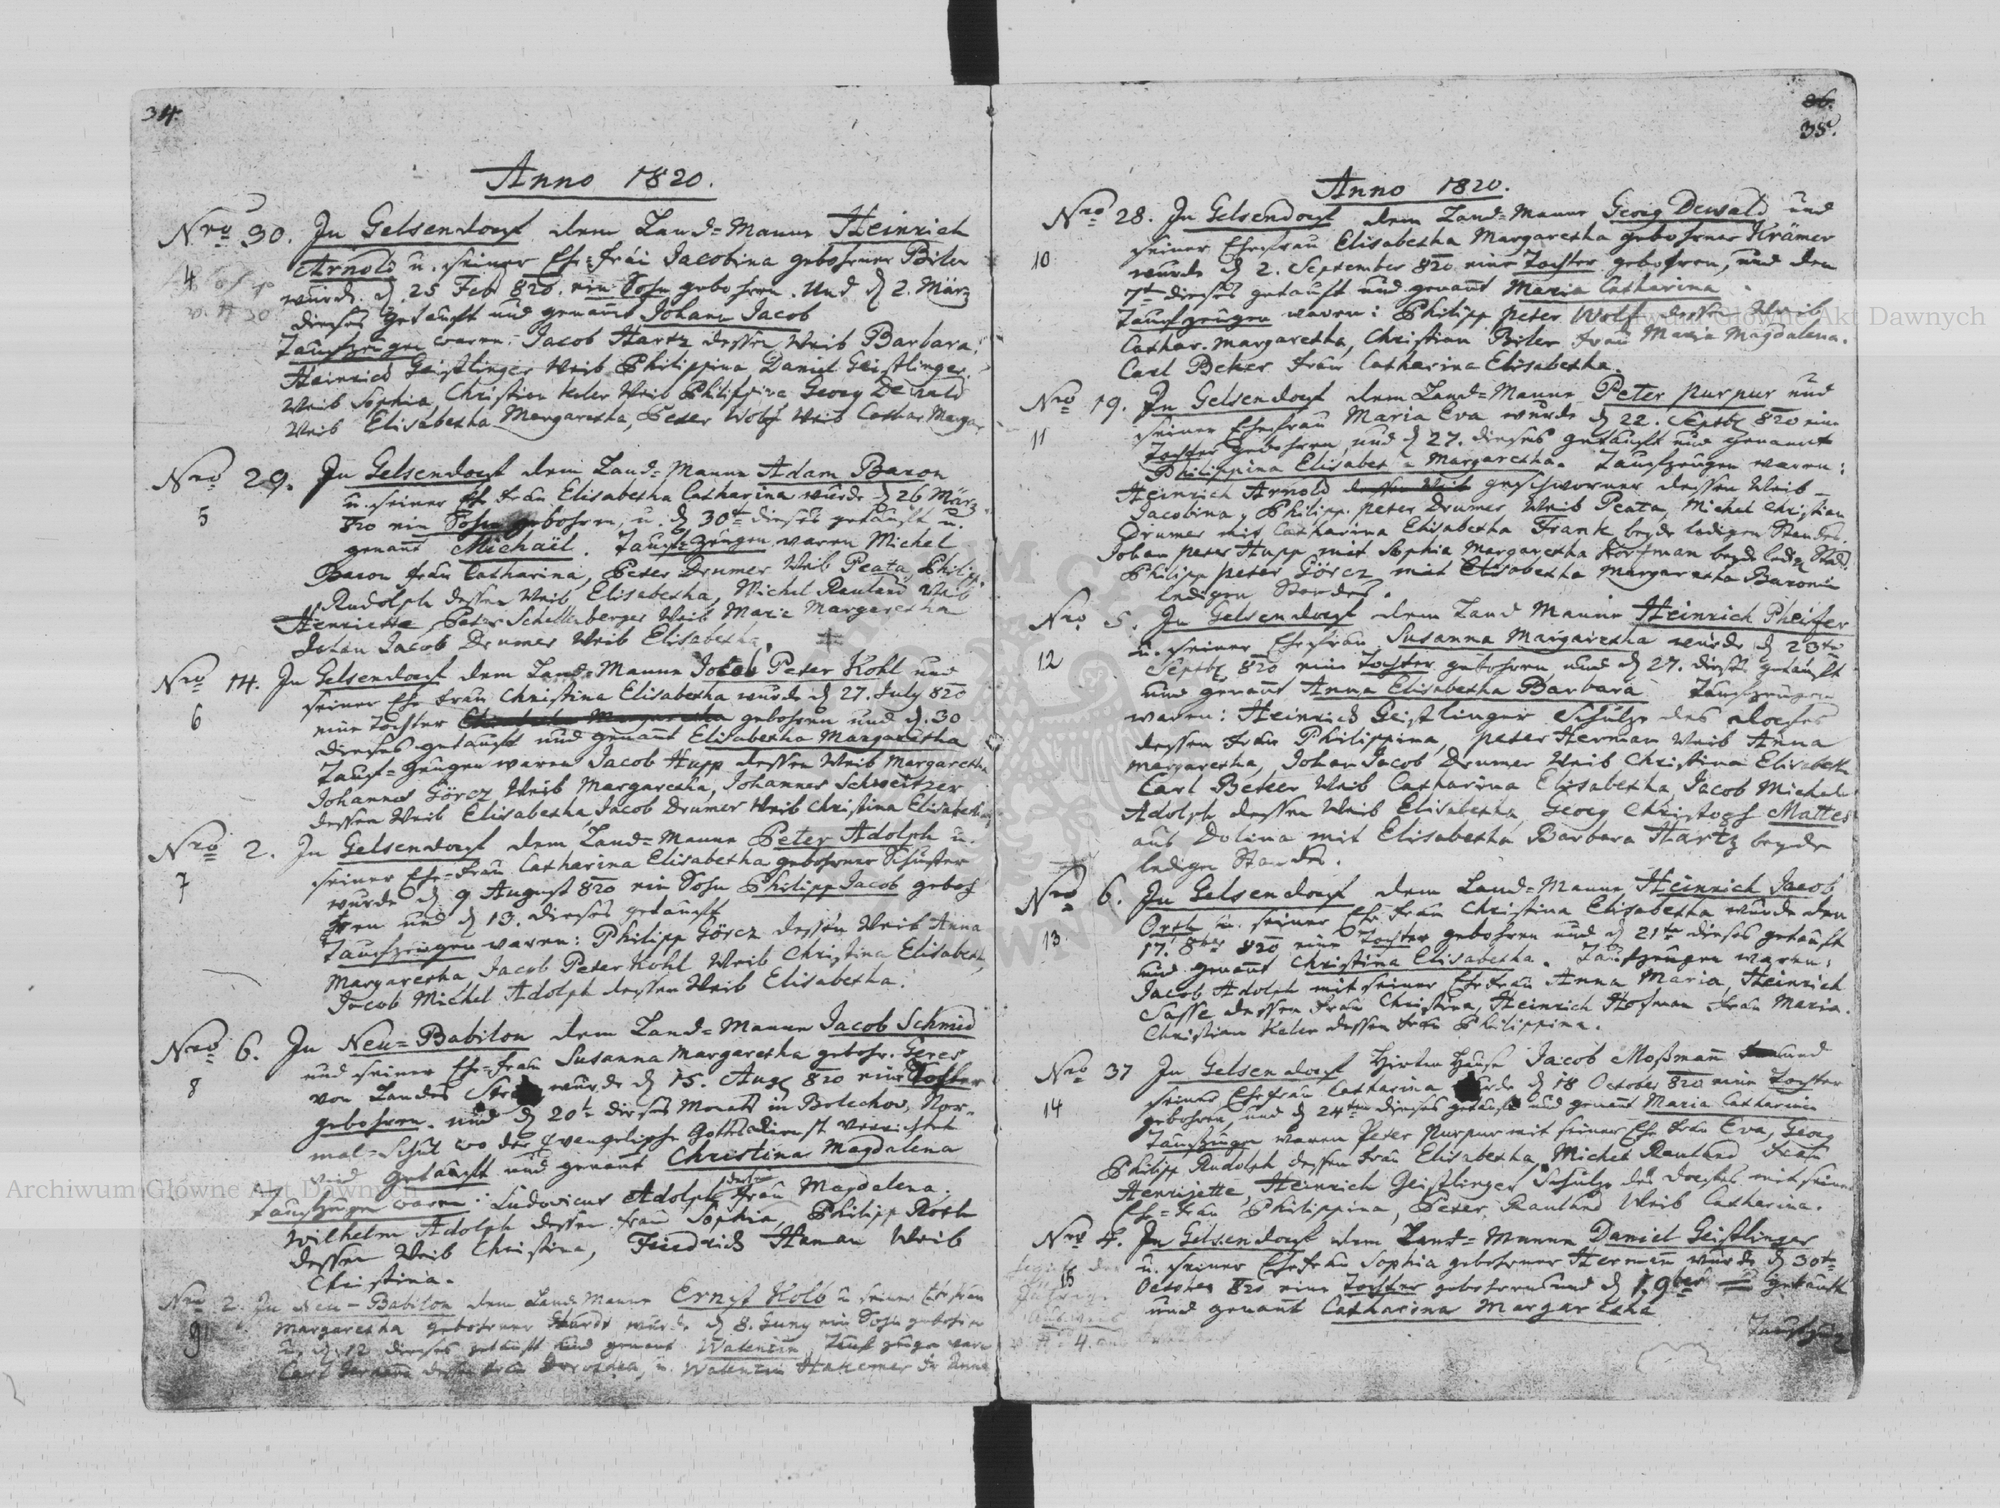 34.
Anno 1820.
Nro 30. In Gelsendorf dem Land=Manne Heinrich
4
Arnold u. seiner Ehe=Frau Jacobina gebohrner Biler
wurde d 25 Feb 820. ein Sohn gebohren. Und d 2. März
dieses getauft und genannt Johann Jacob
Taufzeugen waren: Jacob Hartz dessen Weib Barbara,
Heinrich Geistlinger Weib Philippina, Daniel Geistlinger
Weib Sophia, Christian Keler Weib Philippina Georg Dewald
Weib Elisabetha Margaretha, Peter Wolf Weib Cathar. Margar
Nro 29. In Gelsendorf dem Land=Manne Adam Baron
5
u. seiner Ehe Frau Elisabetha Catharina wurde d 26 März
820 ein Sohn gebohren, u. d 30t dieses getauft u.
genant Michaël. Tauf=zeugen waren Michel
Baron Frau Catharina, Peter Drumer Weib Peata, Philip
Rudolph dessen Weib Elisabetha, Michel Rauland Weib
Henrietta, Peter Schellenberger Weib Maria Margaretha
Johan Jacob Drumer Weib Elisabetha.
Nro 14. In Gelsendorf dem Land=Manne Jacob Peter Kohl und
6
seiner Ehe Frau Christina Elisabetha wurde d 27. July 820
eine Tochter gebohren und d. 30
dieses getauft und genant Elisabetha Margaretha
Tauf=zeugen waren Jacob Hupp dessen Weib Margaretha
Johannes Görcz Weib Margaretha, Johannes Schweitzer
dessen Weib Elisabetha, Jacob Drumer Weib Christina Elisabetha
Nro 2. In Gelsendorf dem Land=Manne Peter Adolph u.
7
seiner Ehe=Frau Catharina Elisabetha gebohrner Schuster
wurde d 9 August 820 ein Sohn Philipp Jacob geboh
ren und d 13. dieses getauft
Taufzeugen waren: Philipp Görcz dessen Weib Anna
Margaretha, Jacob Peter Kohl Weib Christina Elisabeth,
Jacob Michel Adolph dessen Weib Elisabetha.
Nro 6. In Neu=Babilon dem Land=Manne Jacob Schmid
8
und seiner Ehe=Frau Susanna Margaretha gebohr. Geres
von Landes wurde d 15. Aug 820 eine Tochter
gebohren. und d 20t dieses Monats in Bolechow, Nor-
mal=Schul wo der Evangelische Gottsdienst verrichtet
wird getauft und genant Christina Magdalena
Taufzeugen waren: Ludovicus Adolph dessen Frau Magdalena,
Wilhelm Adolph dessen Frau Sophia, Philipp Roth
dessen Weib Christina, Friedrich Haman Weib
Christina.
Nro 2. In Neu=Babilon dem Land Manne Ernst Kolb u seiner Ehe Frau
9
Margaretha gebohrner wurde d 8. Juny ein Sohn gebohren
u. d 12 dieses getauft und genant Valentin, Tauf zeugen ware
Carl dessen Frau u. Valentin Anna
35.
Anno 1820.
Nro 28. In Gelsendorf dem Land=Manne Georg Dewald und
10
seiner Ehefrau Elisabetha Margaretha gebohrner Krämer
wurde d 2. September 820 eine Tochter gebohren, und den
7t dieses getauft und genannt Maria Catharina
Taufzeugen waren: Philipp Peter Wolf dessen Weib
Cathar. Margaretha, Christian Biler Frau Maria Magdalena.
Carl Beker Frau Catharina Elisabetha.
Nro 19. In Gelsendorf dem Land=Manne Peter Purpur und
11
seiner Ehefrau Maria Eva wurde d 22. Septbr 820 eine
Tochter gebohren, und d 27. dieses getauft und genannt
Philippina Elisabetha Margaretha. Taufzeugen waren:
Heinrich Arnold geschworner dessen Weib
Jacobina, Philipp Peter Drumer, Weib Peata, Michel Christian
Drumer mit Catharina Elisabetha Frank beyde ledigen Standes.
Johan Peter Hupp mit Sophia Margaretha Korfman beyde ledig Stad.
Philipp Peter Görcz mit Elisabetha Margaretha Baronin
ledigen Standes.
Nro 5. In Gelsendorf dem Land Manne Heinrich Pfeifer
12
u. seiner Ehefrau Susanna Margaretha wurde d 23ten
Septbr 820 eine Tochter gebohren und d 27. dieses getauft
und genannt Anna Elisabetha Barbara Taufzeugen
waren: Heinrich Geistlinger Schulze des Dorfes
dessen Frau Philippina, Peter Herman Weib Anna
Margaretha, Johan Jacob Drumer Weib Christina Elisabeth
Carl Beker Weib Catharina Elisabetha, Jacob Michel
Adolph dessen Weib Elisabetha, Georg Christoph Mattes
aus Dolina mit Elisabetha Barbara Hartz beyde
ledigen Standes.
Nro 6. In Gelsendorf dem Land=Manne Heinrich Jacob
13
Orth u. seiner Ehe Frau Christina Elisabetha wurde den
17. 8ber 820 eine Tochter gebohren und d 21ten dieses getauft
und genannt Christina Elisabetha. Taufzeugen waren:
Jacob Adolph mit seiner Ehefrau Anna Maria, Heinrich
Sasse dessen Frau Christina, Heinrich Hofman Frau Maria.
Christian Keler dessen Frau Philippina.
Nro 37 In Gelsendorf Hirten Hause Jacob Moßmann und
14
seiner Ehefrau Catharina wurde d 18 October 820 eine Tochter
gebohren, und d 24ten dieses getauft und genant Maria Catharina
Taufzeugen waren Peter Purpur mit seiner Ehe Frau Eva, Georg
Philipp Rudolph dessen Frau Elisabetha, Michel Rauland Frau
Henrijette, Heinrich Geistlinger Schulze des Dorfes mit seiner
Ehe=Frau Philippina, Peter Rauland Weib Catharina.
Nro 4. In Gelsendorf dem Land=Manne Daniel Geistlinger
15
u. seiner Ehefrau Sophia gebohrner Herman wurde d 30ten
October 820 eine Tochter gebohren und d 1. 9ber getauft
und genannt Catharina Margaretha
Taufzeug
Archiwum Główne Akt Dawnych
Archiwum Główne Akt Dawnych